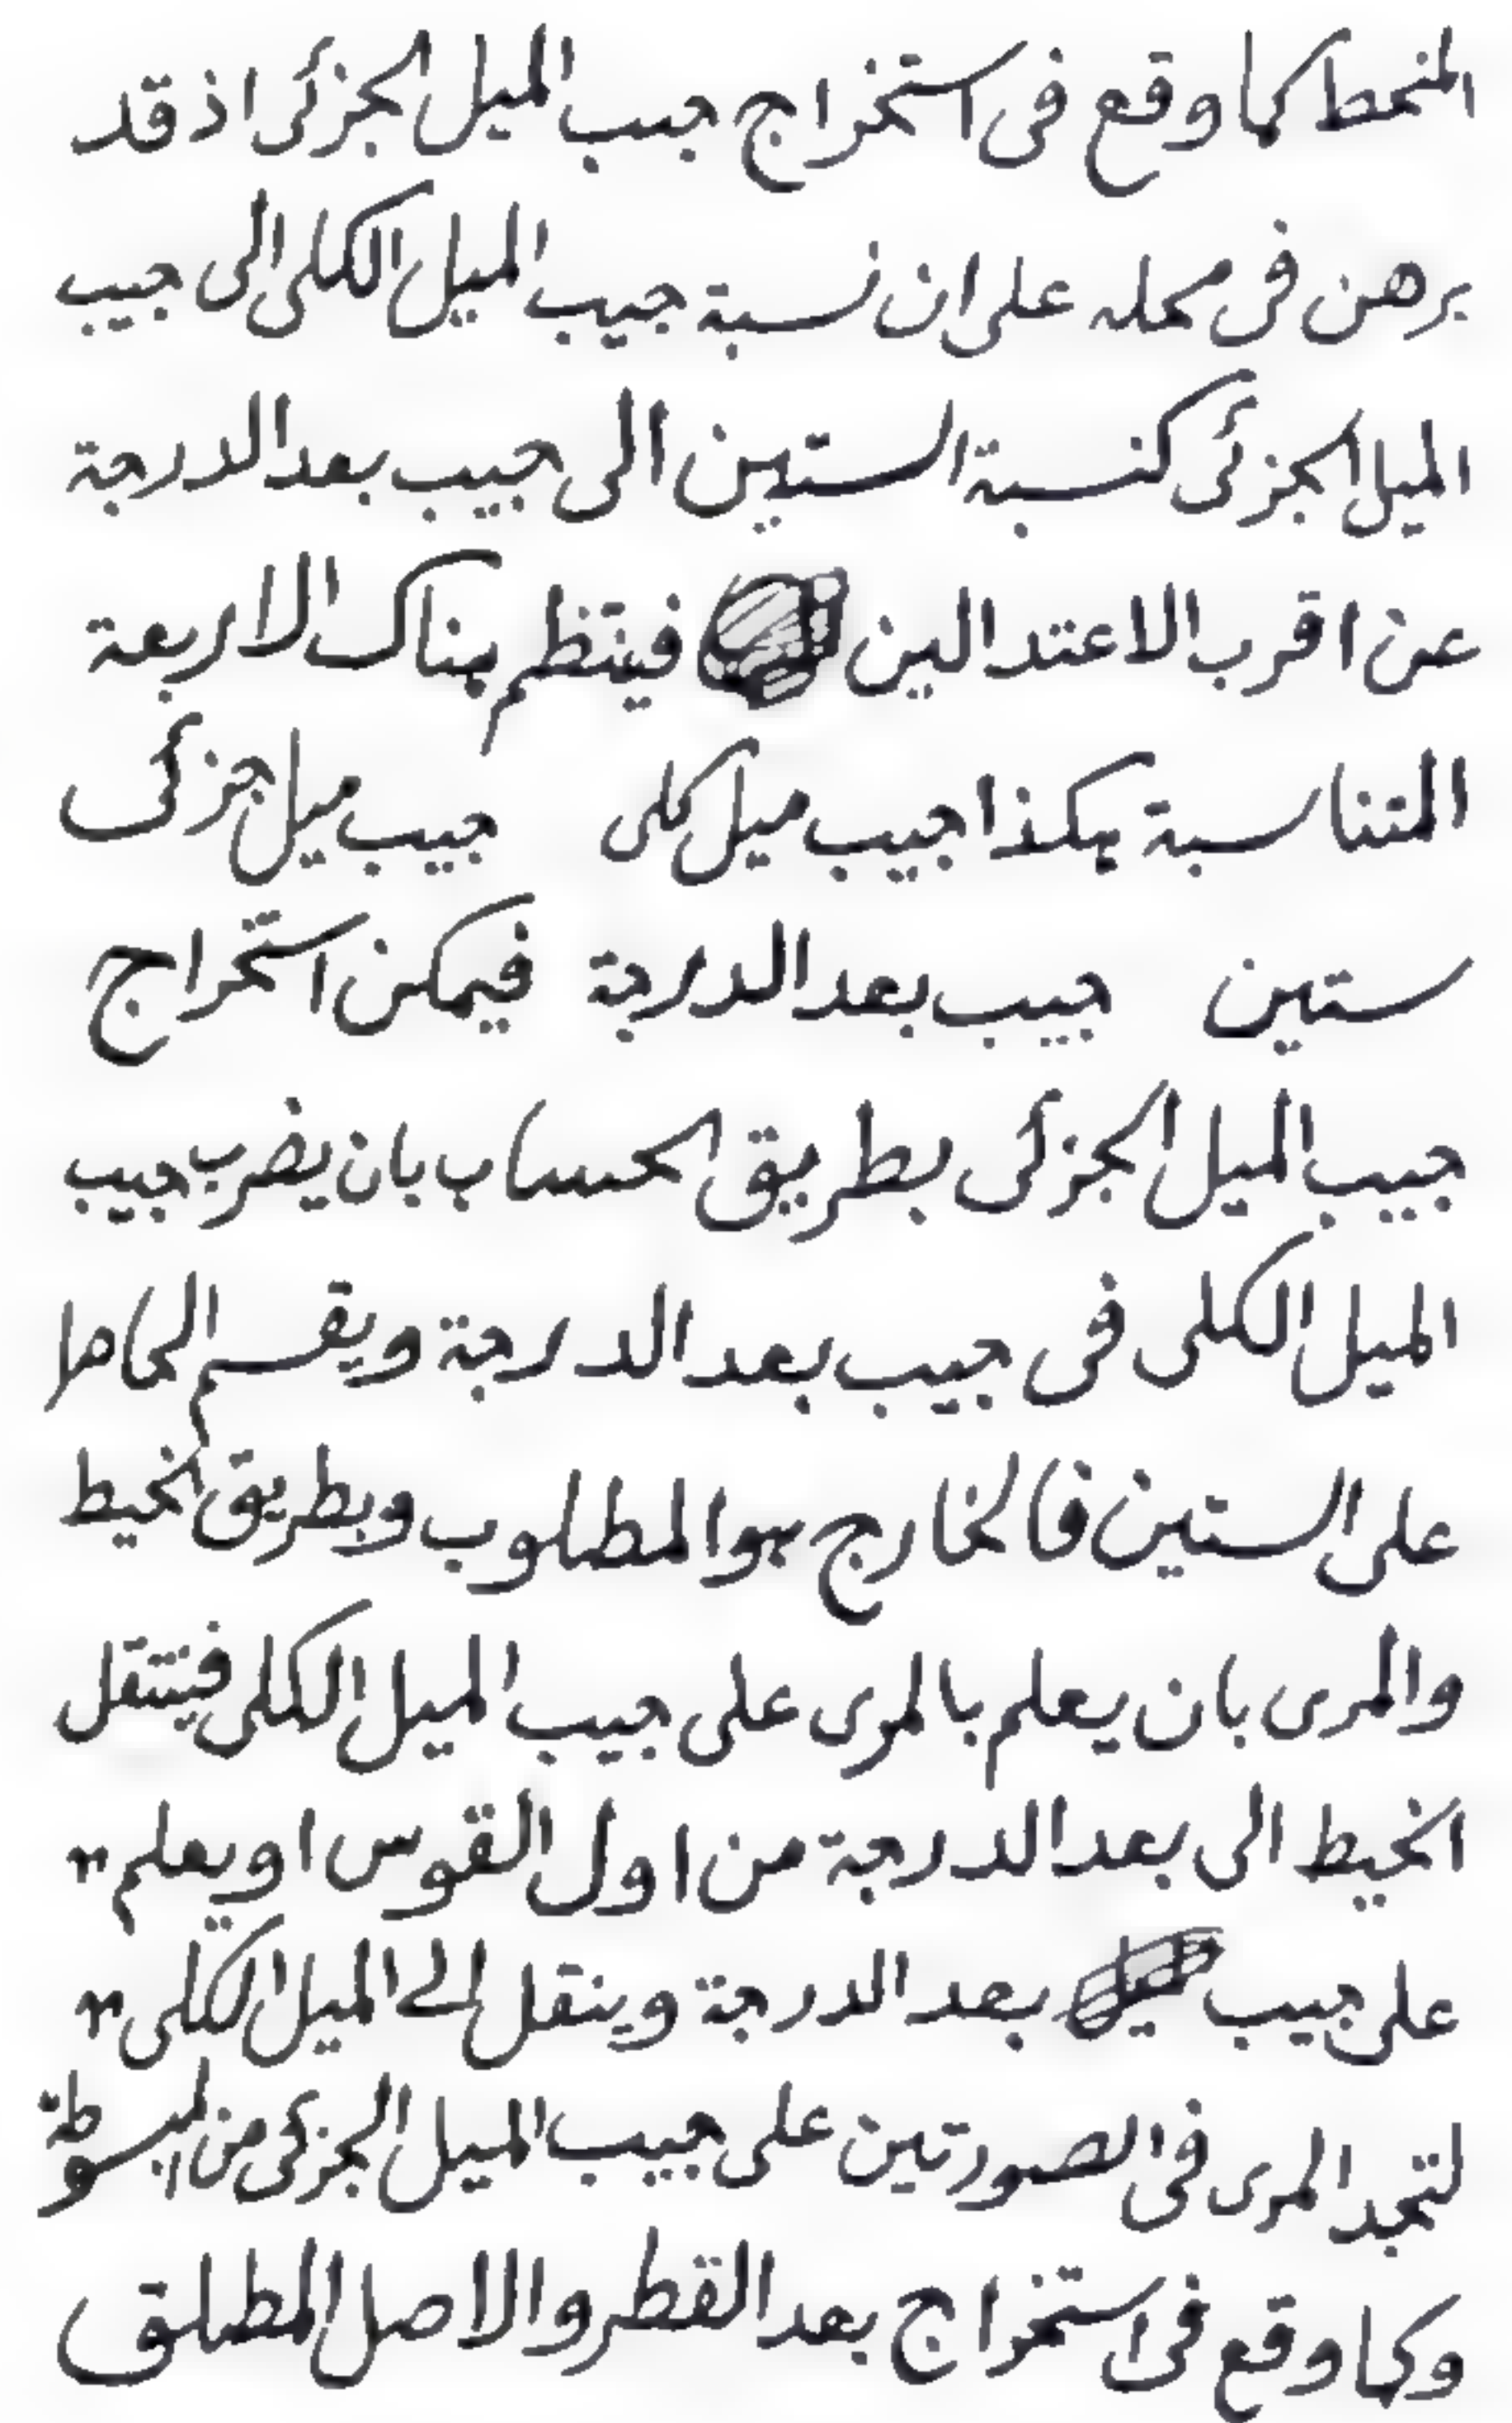 المنحط كما وقع فى استخراج جيب الميل الجزئى اذ قد
برهن فى محله على ان نسبة جيب الميل الكلى الى جيب
الميل الجزئى كنسبة الستين الى جيب بعد الدرجة
عن اقرب الاعتدالين فينتظم هناك الاربعة
المتناسبة هكذا جيب ميل كلى جيب ميل جزئى
ستين جيب بعد الدرجة فيمكن استخراج
جيب الميل الجزئى بطريق الحساب بان يضرب جيب
الميل الكلى فى جيب بعد الدرجة ويقسم الحاصل
على الستين فالخارج هو المطلوب وبطريق الخيط
والمرى بان يعلم بالمرى على جيب الميل الكلى فينتقل
الخيط الى بعد الدرجة من اول القوس او يعلم
على جيب بعد الدرجة وينقل الى الميل الكلى
لتجد المرى فى الصورتين على جيب الميل الجزئى من المبسوطة
وكما وقع فى استخراج بعد القطر والاصل المطلق